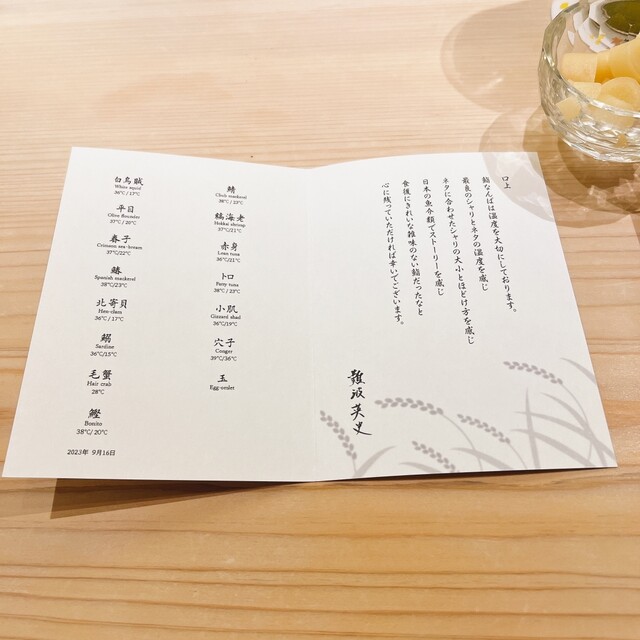 白烏賊
White squid
36℃/17℃
平目
Olive flounder
37℃/20℃
春子
Crimson sea-bream
37℃/22℃
鰆
Spanish mackerel
38℃/23℃
北寄貝
Hen-clam
36℃/17℃
鰯
Sardine
36℃/15℃
毛蟹
Hair crab
28℃
鰹
Bonito
38℃/20℃
2023年 9月16日
鯖
Chub mackerel
38℃/23℃
縞海老
Hokkai shrimp
37℃/21℃
赤身
Lean tuna
36℃/21℃
トロ
Fatty tuna
38℃/23℃
小肌
Gizzard shad
36℃/19℃
穴子
Conger
39℃/36℃
玉
Egg-omlet
口上
鮨なんばは温度を大切にしております。
最良のシャリとネタの温度を感じ
ネタに合わせたシャリの大小とほどけ方を感じ
日本の魚介類でストーリーを感じ
食後にきれいな雑味のない鮨だったなと
心に残っていただければ幸いでございます。
難波英史